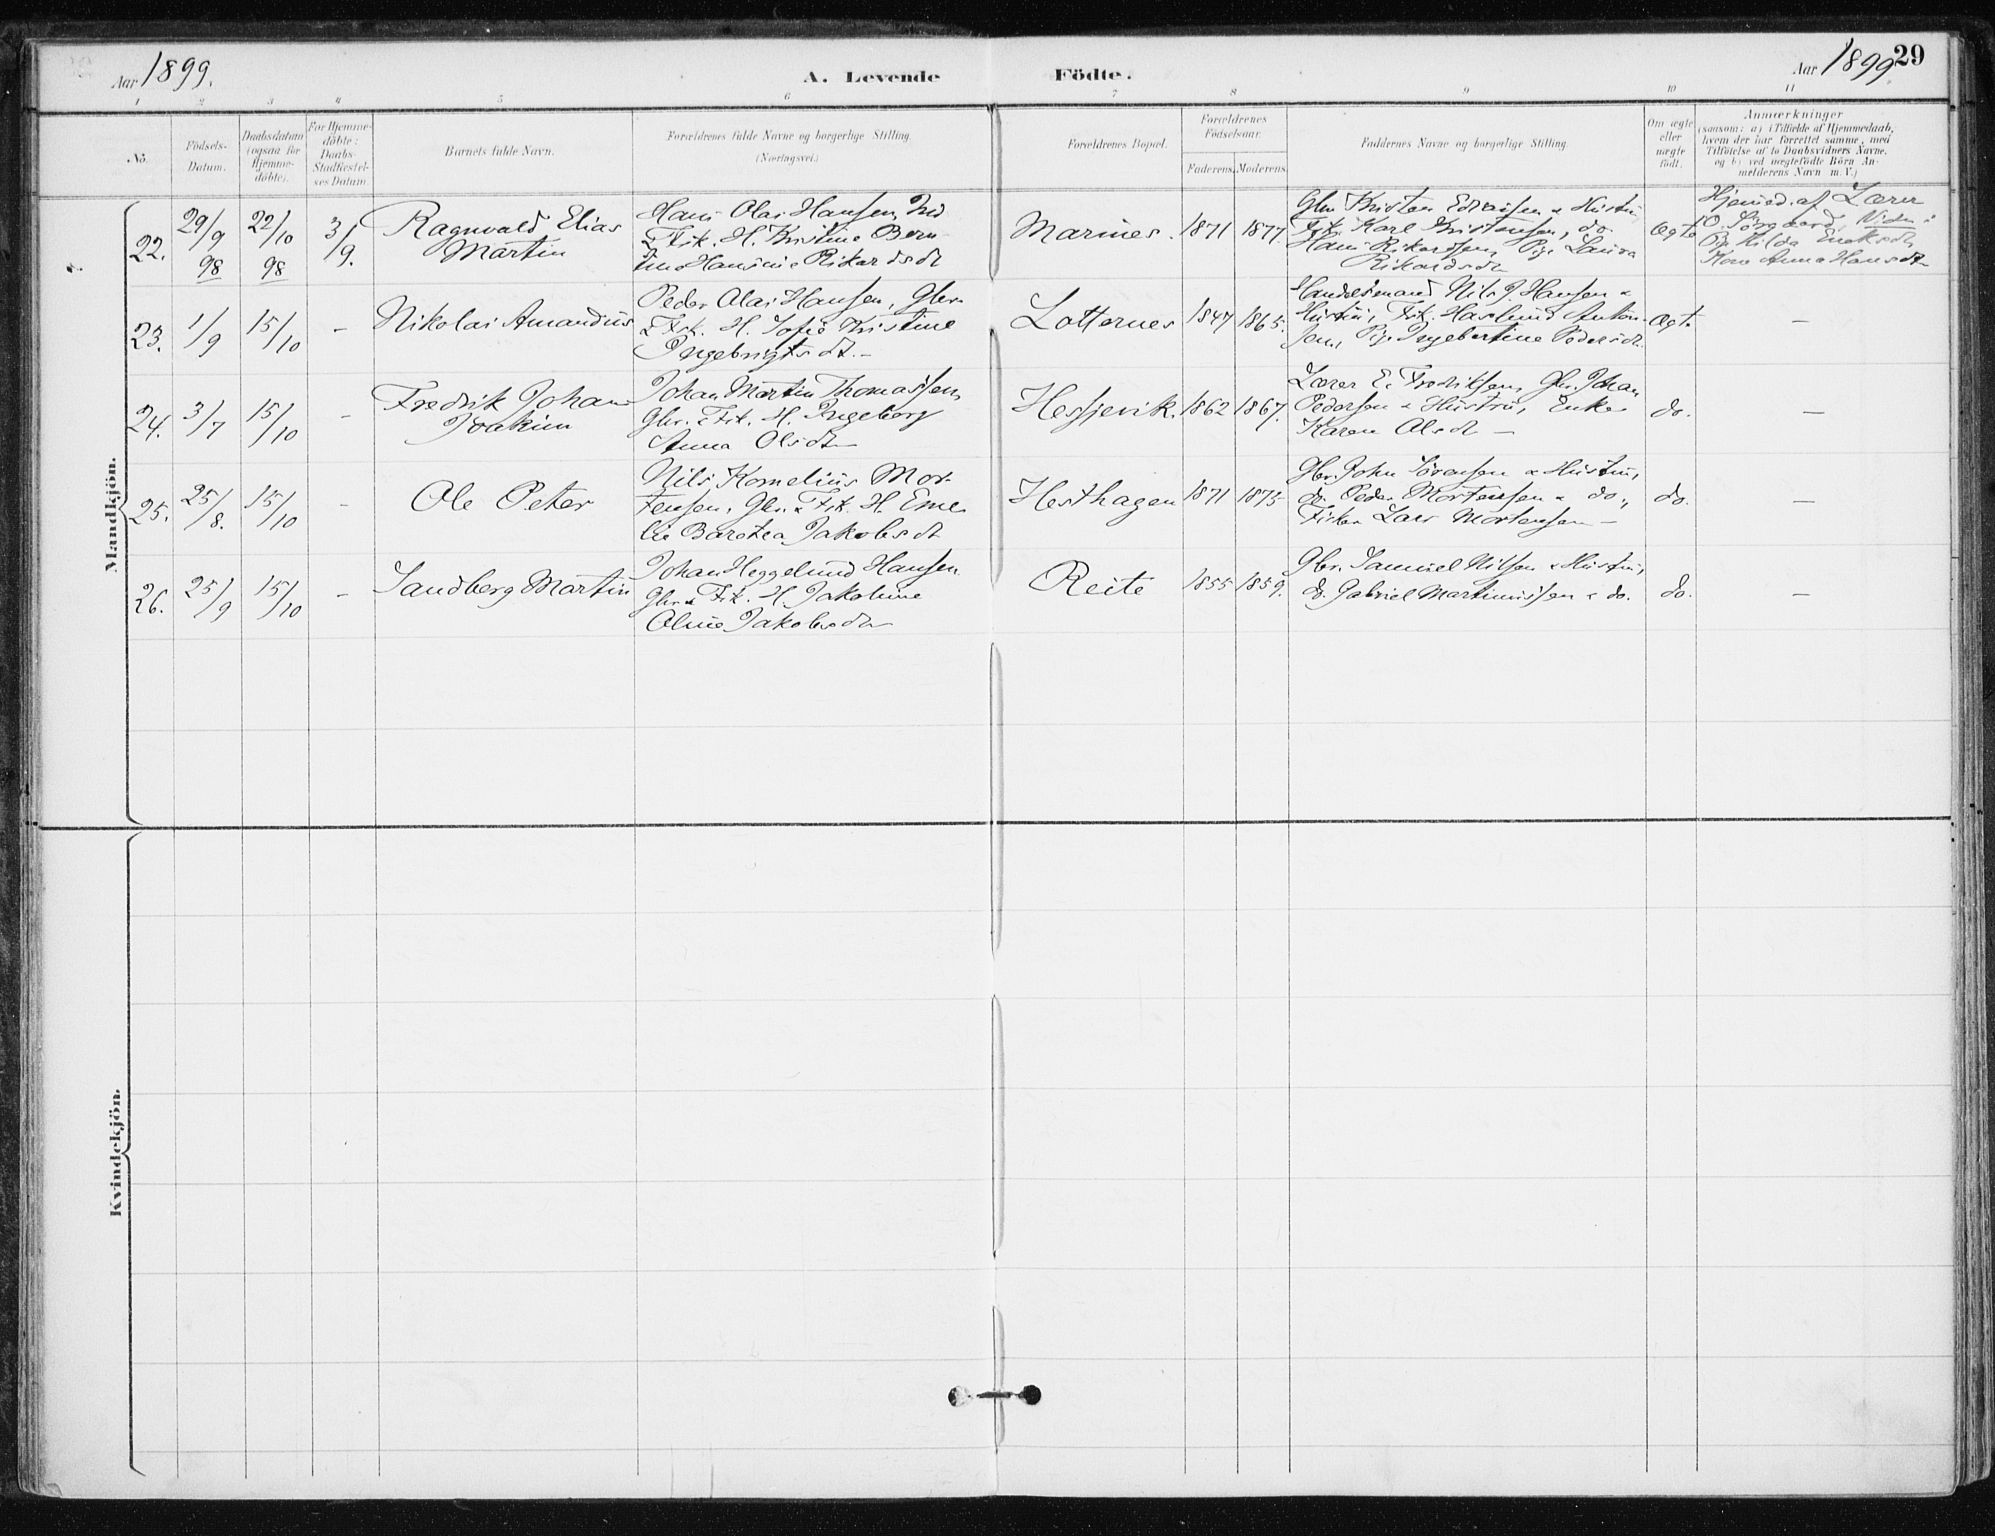 Aar 1899.
A. Levende Födte.
Aar 1899.
29
1 2 3 4 5 6 7 8 9 10 11
No.
Födsels-
Datum.
Daabsdatum
(ogsaa for
Hjemme-
döbte).
For Hjemme-
döbte:
Daabs-
Stadfæstel-
ses Datum.
Barnets fulde Navn.
Forældrenes fulde Navne og borgerlige Stilling.
(Næringsvei.)
Forældrenes Bopæl.
Forældrenes
Födselsaar.
Faderens. Moderens.
Faddernes Navne og borgerlige Stilling.
Om ægte
eller
uægte
födt.
Anmærkninger
(saasom: a) i Tilfælde af Hjemmedaab,
hvem der har forrettet samme, med
Tilföielse af to Daabsvidners Navne.
og b) ved uægtefödte Börn An-
melderens Navn m. V.)
Mandkjön.
22.
29/9
98
22/10
98
3/9.
Ragnvald Elias
Martin
Hans Olai Hansen, Ind
& Fisk. H. Kristine Bern-
Hansine Rikardsdt
Marines.
1871
1877.
Gbr. Kristen & Hustru
Fisk. Karl Kristensen, do
Hans Rikardsen, Pige Laura
Rikardsdt
Ægte
Hjemmed. af Lærer
O.
Pige Hilda
Kone Anna Hansdt.
23.
1/9
15/10
-
Nikolai Amandus
Peder Olai Hansen, Gbr.
& Fisk. H. Sofie Kristine
Ingebrigtsdt.-
Lotternes
1847
1865.
Handelsmand Nils J. Hansen &
Hustru, Fisk. Haslund Anton-
sen, Pige Ingebertine Pedersdt.
Ægte
-
24.
3/7
15/10
-
Fredrik Johan
Joakim
Johan Martin Thomassen,
Gbr. & Fisk. H. Ingeborg
Anna Olsdt-
Hessjevik.
1862
1867.
Lærer E. Fredriksen, Gbr. Johan
Pedersen & Hustru, Enke
Karen Olsdt -
do.
-
25.
25/8.
15/10
-
Ole Peter
Nils Kornelius Mor-
tensen, Gbr. & Fisk. H. Eme-
lie Barotea Jakobsdt
Hesthagen
1871
1875.
Gbr. John Sörensen & Hustru,
do. Peder Mortensen & do.,
Fisker Lars Mortensen -
do.
-
26.
25/9
15/10
-
Sandberg Martin
Johan Heggelund Hansen
Gbr. & Fisk. H. Jakobine
Oline Jakobsdt
Reite
1855
1859.
Gbr. Samuel Nilsen & Hustru,
do. Gabriel Martinussen & do.
do.
-
Kvindekjön.